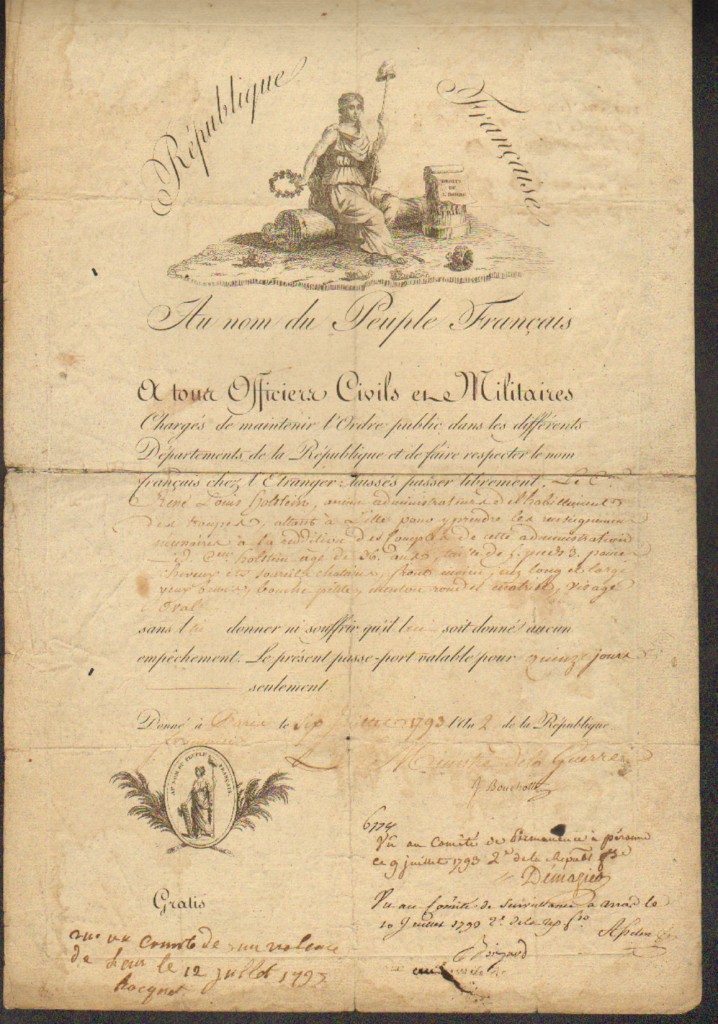 République Française
DROITS DE L'HOMME
Au nom du Peuple Français
A tous Officiers Civils et Militaires
Chargés de maintenir l'Ordre public dans les différents
Départements de la République et de faire respecter le nom
français chez l'Etranger laissés passer librement, Le C.
René Louis Holstein, ancien administrateur d'habillement
des troupes, allant à Lille pour y prendre les renseignemens
à la reddition des comptes de cette administration
Holstein agé de 36 ans, taille de 5 pieds 3 pouces
cheveux et sourcils chatains, front moyen, nez long et large
yeux bouche petite, menton rond et visage
Oval
sans l donner ni souffrir qu'il l soit donné aucun
empêchement. Le présent passe-port valable pour quinze jours
seulement
Donné à Paris le six 1793 l'An 2 de la République
Le Ministre de la Guerre
J Bouchotte
AU NOM DU PEUPLE FRANÇAIS
6774
Vu au Comité de Permanence à péronne
ce 9 juillet 1793 2e de la Répub
Vu au Comité de Surveillance à arras le
10 Juillet 1793 2e de la rep
Gratis
vu au comité de surveillance
de le 12 juillet 1793